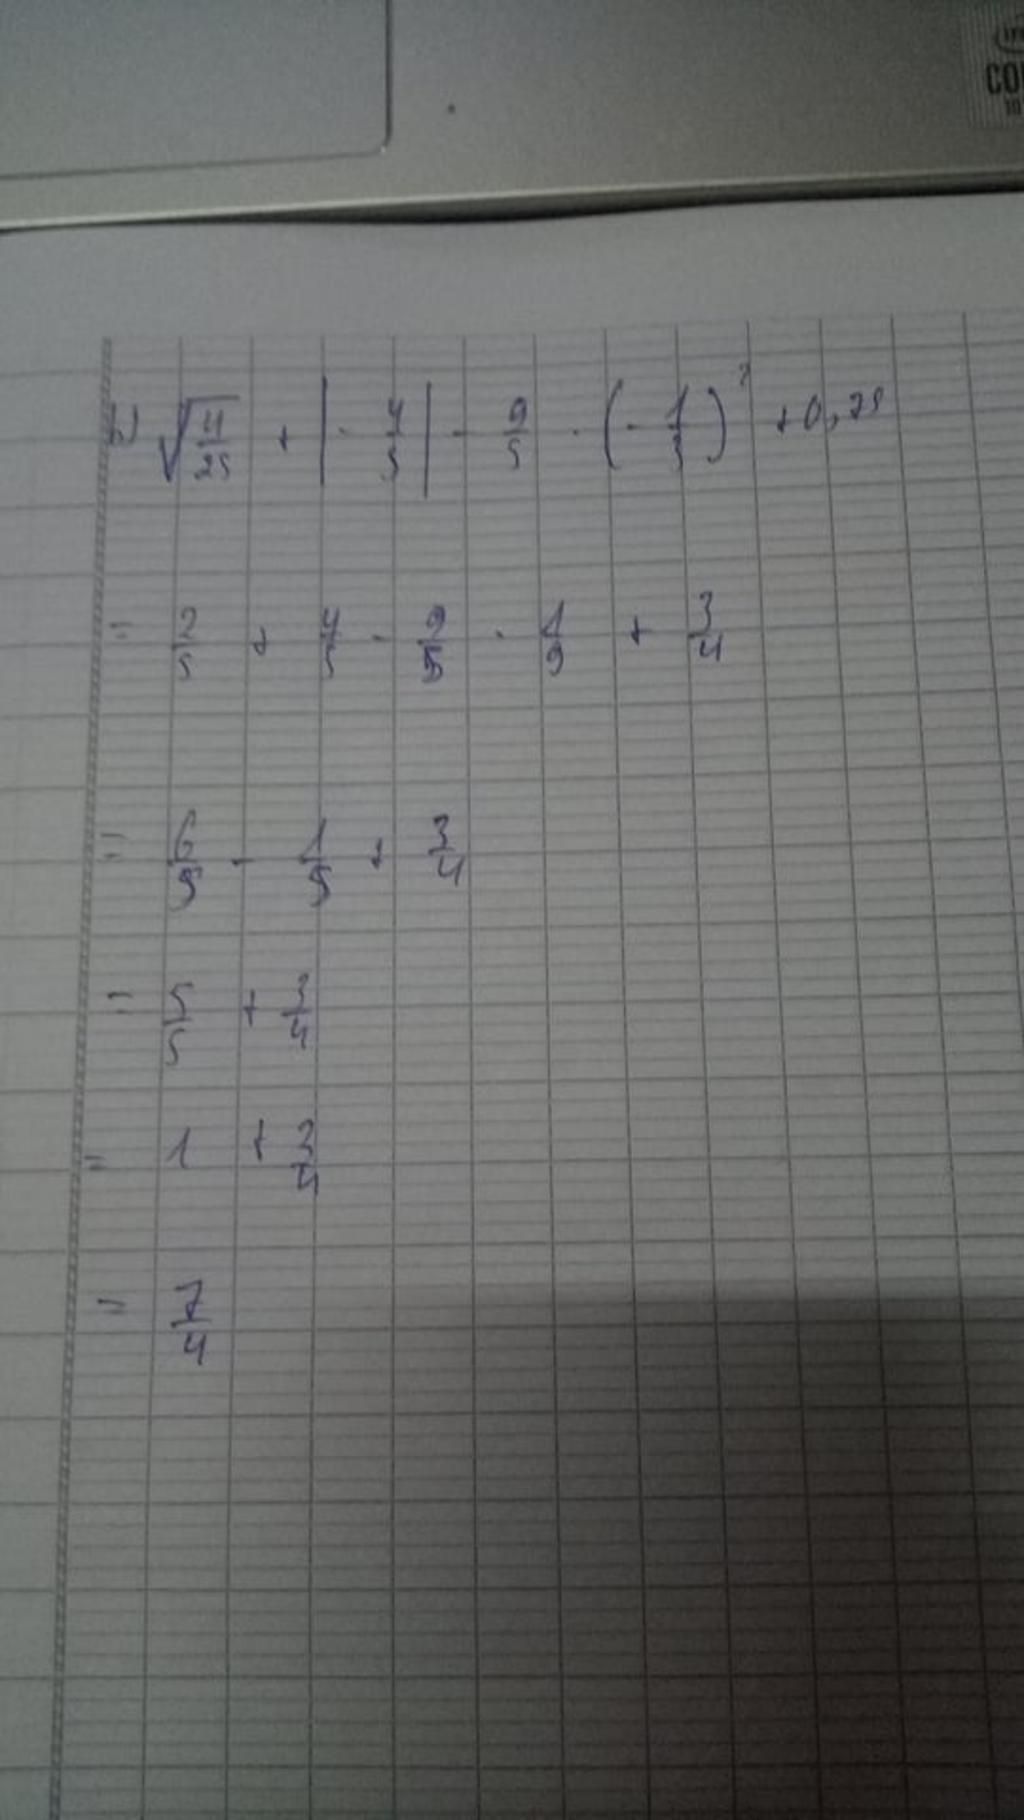 b) √(4/25) + |- 4/5| - 9/5 . (- 1/3)² + 0,75
= 2/5 + 4/5 - 9/5 . 1/9 + 3/4
= 6/5 - 1/5 + 3/4
= 5/5 + 3/4
= 1 + 3/4
= 7/4